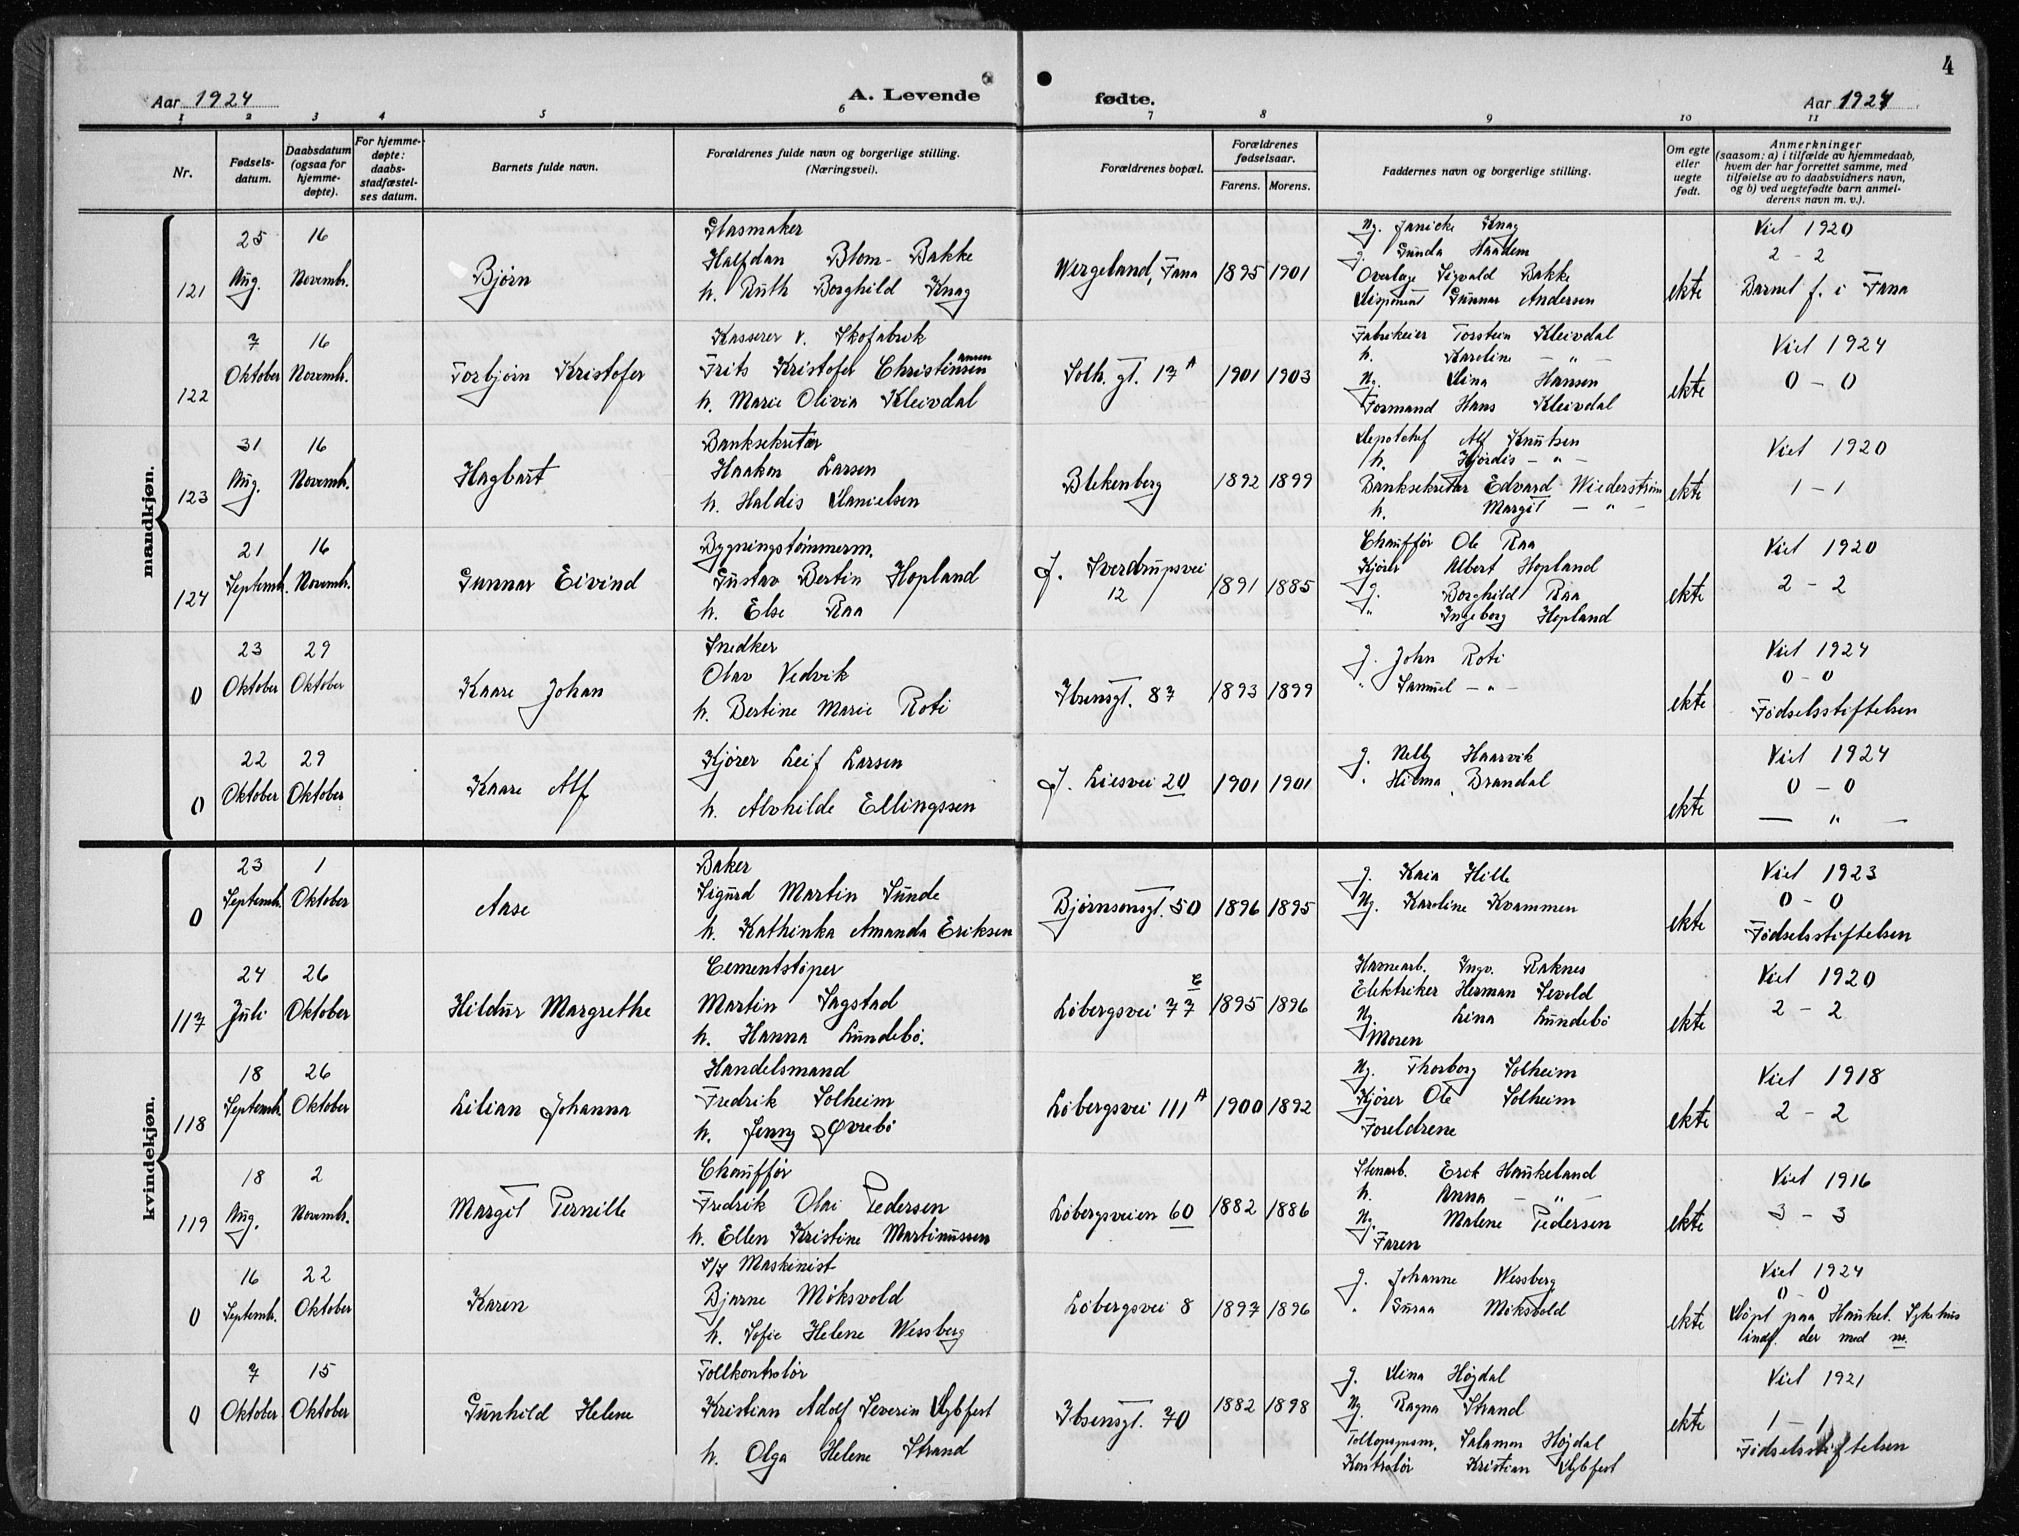 4
Aar 1924
A. Levende
fødte.
Aar 1924
1 2 3 4 5 6 7 8 9 10 11
Nr.
Fødsels-
datum.
Daabsdatum
(ogsaa for
hjemme-
døpte).
For hjemme-
døpte:
daabs-
stadfæstel-
ses datum.
Barnets fulde navn.
Forældrenes fulde navn og borgerlige stilling.
(Næringsvei).
Forældrenes bopæl.
Forældrenes
fødselsaar.
Farens. Morens.
Faddernes navn og borgerlige stilling.
Om egte
eller
uegte
født.
Anmerkninger
(saasom: a) i tilfælde av hjemmedaab,
hvem der har forrettet samme, med
tilføielse av to daabsvidners navn,
og b) ved uegtefødte barn anmel-
derens navn m. v.).
mandkjøn.
121
25
Aug.
16
Novembr.
Bjørn
Glasmaker
Halfdan Blom-Bakke
h. Ruth Borghild Knag
Wergeland, Fana
1895 1901
Ng. Janicke Knag
g. Gunda Haadem
Overlæge Sigvald Bakke
Disponent Gunnar Andersen
ekte
Viet 1920
2 - 2
Barnet f. i Fana
122
7
Oktober
16
Novembr.
Torbjørn Kristofer
Kasserer v. Skofabrik
Frits Kristofer Christensen
ansen
h. Marie Olivia Kleivdal
Solh. gt. 17 A
1901 1903
Fabrikeier Torstein Kleivdal
h. Karoline - " -
Ng. Dina Hansen
Formand Hans Kleivdal
ekte
Viet 1924
0 - 0
123
31
Aug.
16
Novembr.
Hagbart
Banksekretær
Haakon Larsen
h. Haldis Danielsen
Blekenberg
1892 1899
Depotchef Alf Knutsen
h. Hjørdis - " -
Banksekretær Edvard Wiederstrøm
h. Margit - " -
ekte
Viet 1920
1 - 1
124
21
Septembr.
16
Novembr.
Gunnar Eivind
Bygningstømmerm.
Gustav Bertin Hopland
h. Else Raa
J. Sverdrupsvei
12
1891 1885
Chauffør Ole Raa
Kjører Albert Hopland
g. Borghild Raa
" Ingeborg Hopland
ekte
Viet 1920
2 - 2
0
23
Oktober
29
Oktober
Kaare Johan
Snedker
Olav Vedvik
h. Bertine Marie Roti
Ibsensgt. 87
1893 1899
g. John Roti
" Samuel - " -
ekte
Viet 1924
0 - 0
Fødselsstiftelsen
0
22
Oktober
29
Oktober
Kaare Alf
Kjører Leif Larsen
h. Alvhilde Ellingssen
J. Liesvei 20
1901 1901
g. Nelly Haarvik
" Hilma Brandal
ekte
Viet 1924
0 - 0
- " -
kvindekjøn.
0
23
Septembr.
1
Oktober
Aase
Baker
Sigurd Martin Sunde
h. Kathinka Amanda Eriksen
Bjørnsonsgt. 50
1896 1895
g. Kaia Hille
Ng. Karoline Kvammen
ekte
Viet 1923
0 - 0
Fødselsstiftelsen
117
24
Juli
26
Oktober
Hildur Margrethe
Cementstøper
Martin Sagstad
h. Hanna Lundebø.
Løbergsvei 77 C
1895 1896
Havnearb. Ingv. Raknes
Elektriker Herman Sevold
Ng. Lina Lundebø
Moren
ekte
Viet 1920
2 - 2
118
18
Septembr.
26
Oktober
Lilian Johanna
Handelsmand
Fredrik Solheim
h. Jenny Øvrebø
Løbergsvei 111 A
1900 1892
Ng. Thorborg Solheim
Kjører Ole Solheim
Foreldrene
ekte
Viet 1918
2 - 2
119
18
Aug.
2
Novembr.
Margit Pernille
Chauffør
Fredrik Olai Pedersen
h. Ellen Kristine Martinussen
Løbergsveien 60
1882 1886
Stenarb. Erik Haukeland
h. Anna - " -
Ng. Malene Pedersen
Faren
ekte
Viet 1916
3 - 3
0
16
Septembr.
22
Oktober
Karen
Maskinist
Bjarne Miksvold
h. Sofie Helene Wessberg
Løbergsvei 8
1897 1896
g. Johanne Wessberg
" Miksvold
ekte
Viet 1924
0 - 0
Døpt paa Haukel. Sykehus
indf. der med nr.
0
7
Oktober
15
Oktober
Gunhild Helene
Tollkontrolør
Kristian Adolf Severin Dybfest
h. Olga Helene Strand
Ibsensgt. 70
1882 1898
g. Dina Højdal
Ng. Ragna Strand
Tollopsynsm. Salamon Højdal
Kontrolør Kristian Dybfest
ekte
Viet 1921
1 - 1
Fødselsstiftelsen